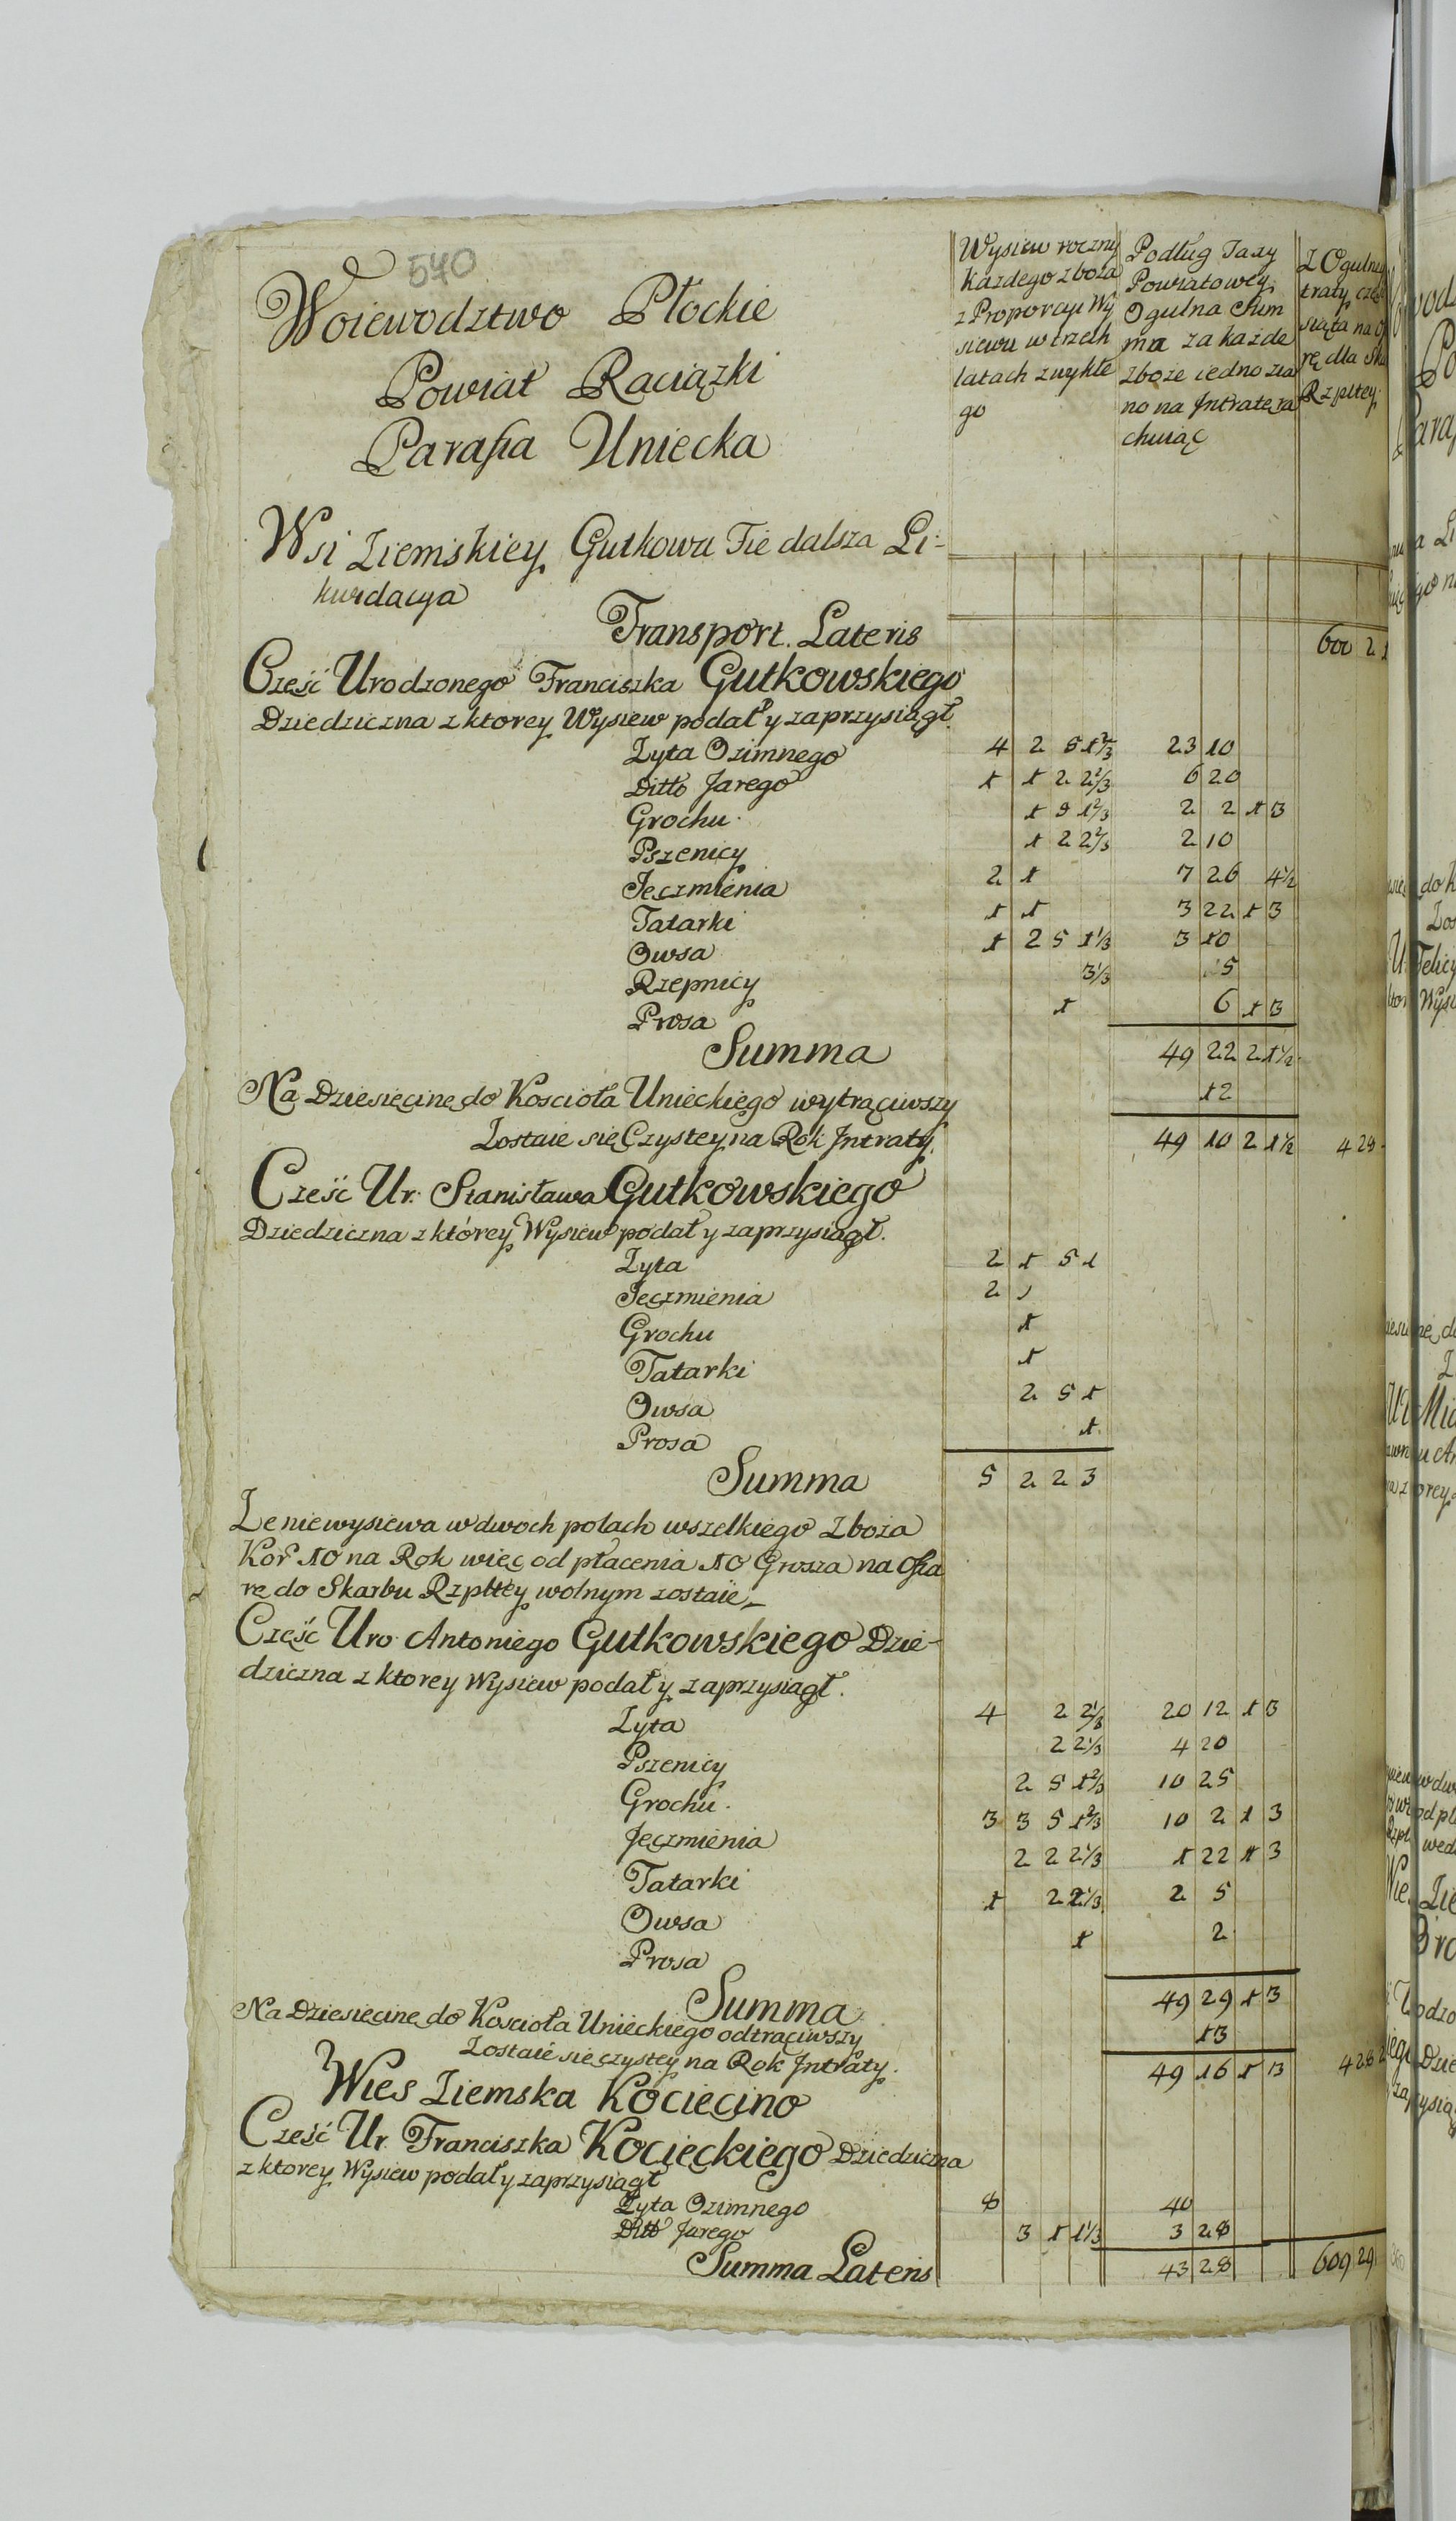 540
Woiewodztwo Płockie
Powiat Raciązki
Parafia Uniecka
Wysiew roczny
Kazdego zboza
z Proporcyi Wy
siewu w trzech
latach zwykłe
go
Podług Taxy
Powiatowey
Ogulna Sum
ma za kazde
zboze iedno zia
no na Jntratę ra
chuiąc
Z Ogulney
traty, czę
siąta na O
rę dla Ska
Rzpltey
Wsi Ziemskiey Gutkowa Tie dalsza Li-
kwidacya
Transport Lateris 600 2
Cześć Urodzonego Franciszka Gutkowskiego
Dziedziczna z ktorey Wysiew podał y zaprzysiągł
Zyta Ozimnego 4 2 5 1 2/3 23 10
Ditto Jarego 1 1 2 2 2/3 6 20
Grochu 1 9 1 2/3 2 2 1 3
Pszenicy 1 2 2 2/3 2 10
Jęczmienia 2 1 7 26 4 1/2
Tatarki 1 1 3 22 1 3
Owsa 1 2 5 1 1/3 3 10
Rzepnicy 3 1/3 5
Prosa 1 6 1 3
Summa 49 22 2 1 1/2
Na Dziesięcinę do Koscioła Unieckiego wytrąciwszy 12
Zostaie się Czystey na Rok Jntraty 49 10 2 1 1/2 4 28
Cześć Ur: Stanisława Gutkowskiego
Dziedziczna z którey Wysiew podał y zaprzysiągł.
Zyta 2 1 5 1
Jęczmienia 2 1
Grochu 1
Tatarki 1
Owsa 2 5 1
Prosa 1
Summa 5 2 2 3
Ze niewysiewa w dwoch polach wszelkiego Zboza
Kor 10 na Rok więc od płacenia 10 Grosza na Ofia
rę do Skarbu Rzpltey wolnym zostaie
Część Uro Antoniego Gutkowskiego Dzie-
dziczna z ktorey Wysiew podał y zaprzysiągł.
Zyta 4 2 2 1/3 20 12 1 3
Pszenicy 2 2 1/3 4 20
Grochu 2 5 1 2/3 10 25
Jęczmienia 3 3 5 1 2/3 10 2 1 3
Tatarki 2 2 2 1/3 1 22 1 3
Owsa 1 2 2 1/3 2 5
Prosa 1 2
Summa 49 29 1 3
Na Dziesięcinę do Koscioła Unieckiego odtrąciwszy 13
Zostaie się czystey na Rok Jntraty. 49 16 1 3 4 28
Wies Ziemska Kocięcino
Cześć Ur. Franciszka Kocięckiego Dziedziczna
z ktorey Wysiew podał y zaprzysiągł
Zyta Ozimnego 8 40
Ditto Jarego 3 1 1 1/3 3 28
Summa Lateris 43 28 609 29